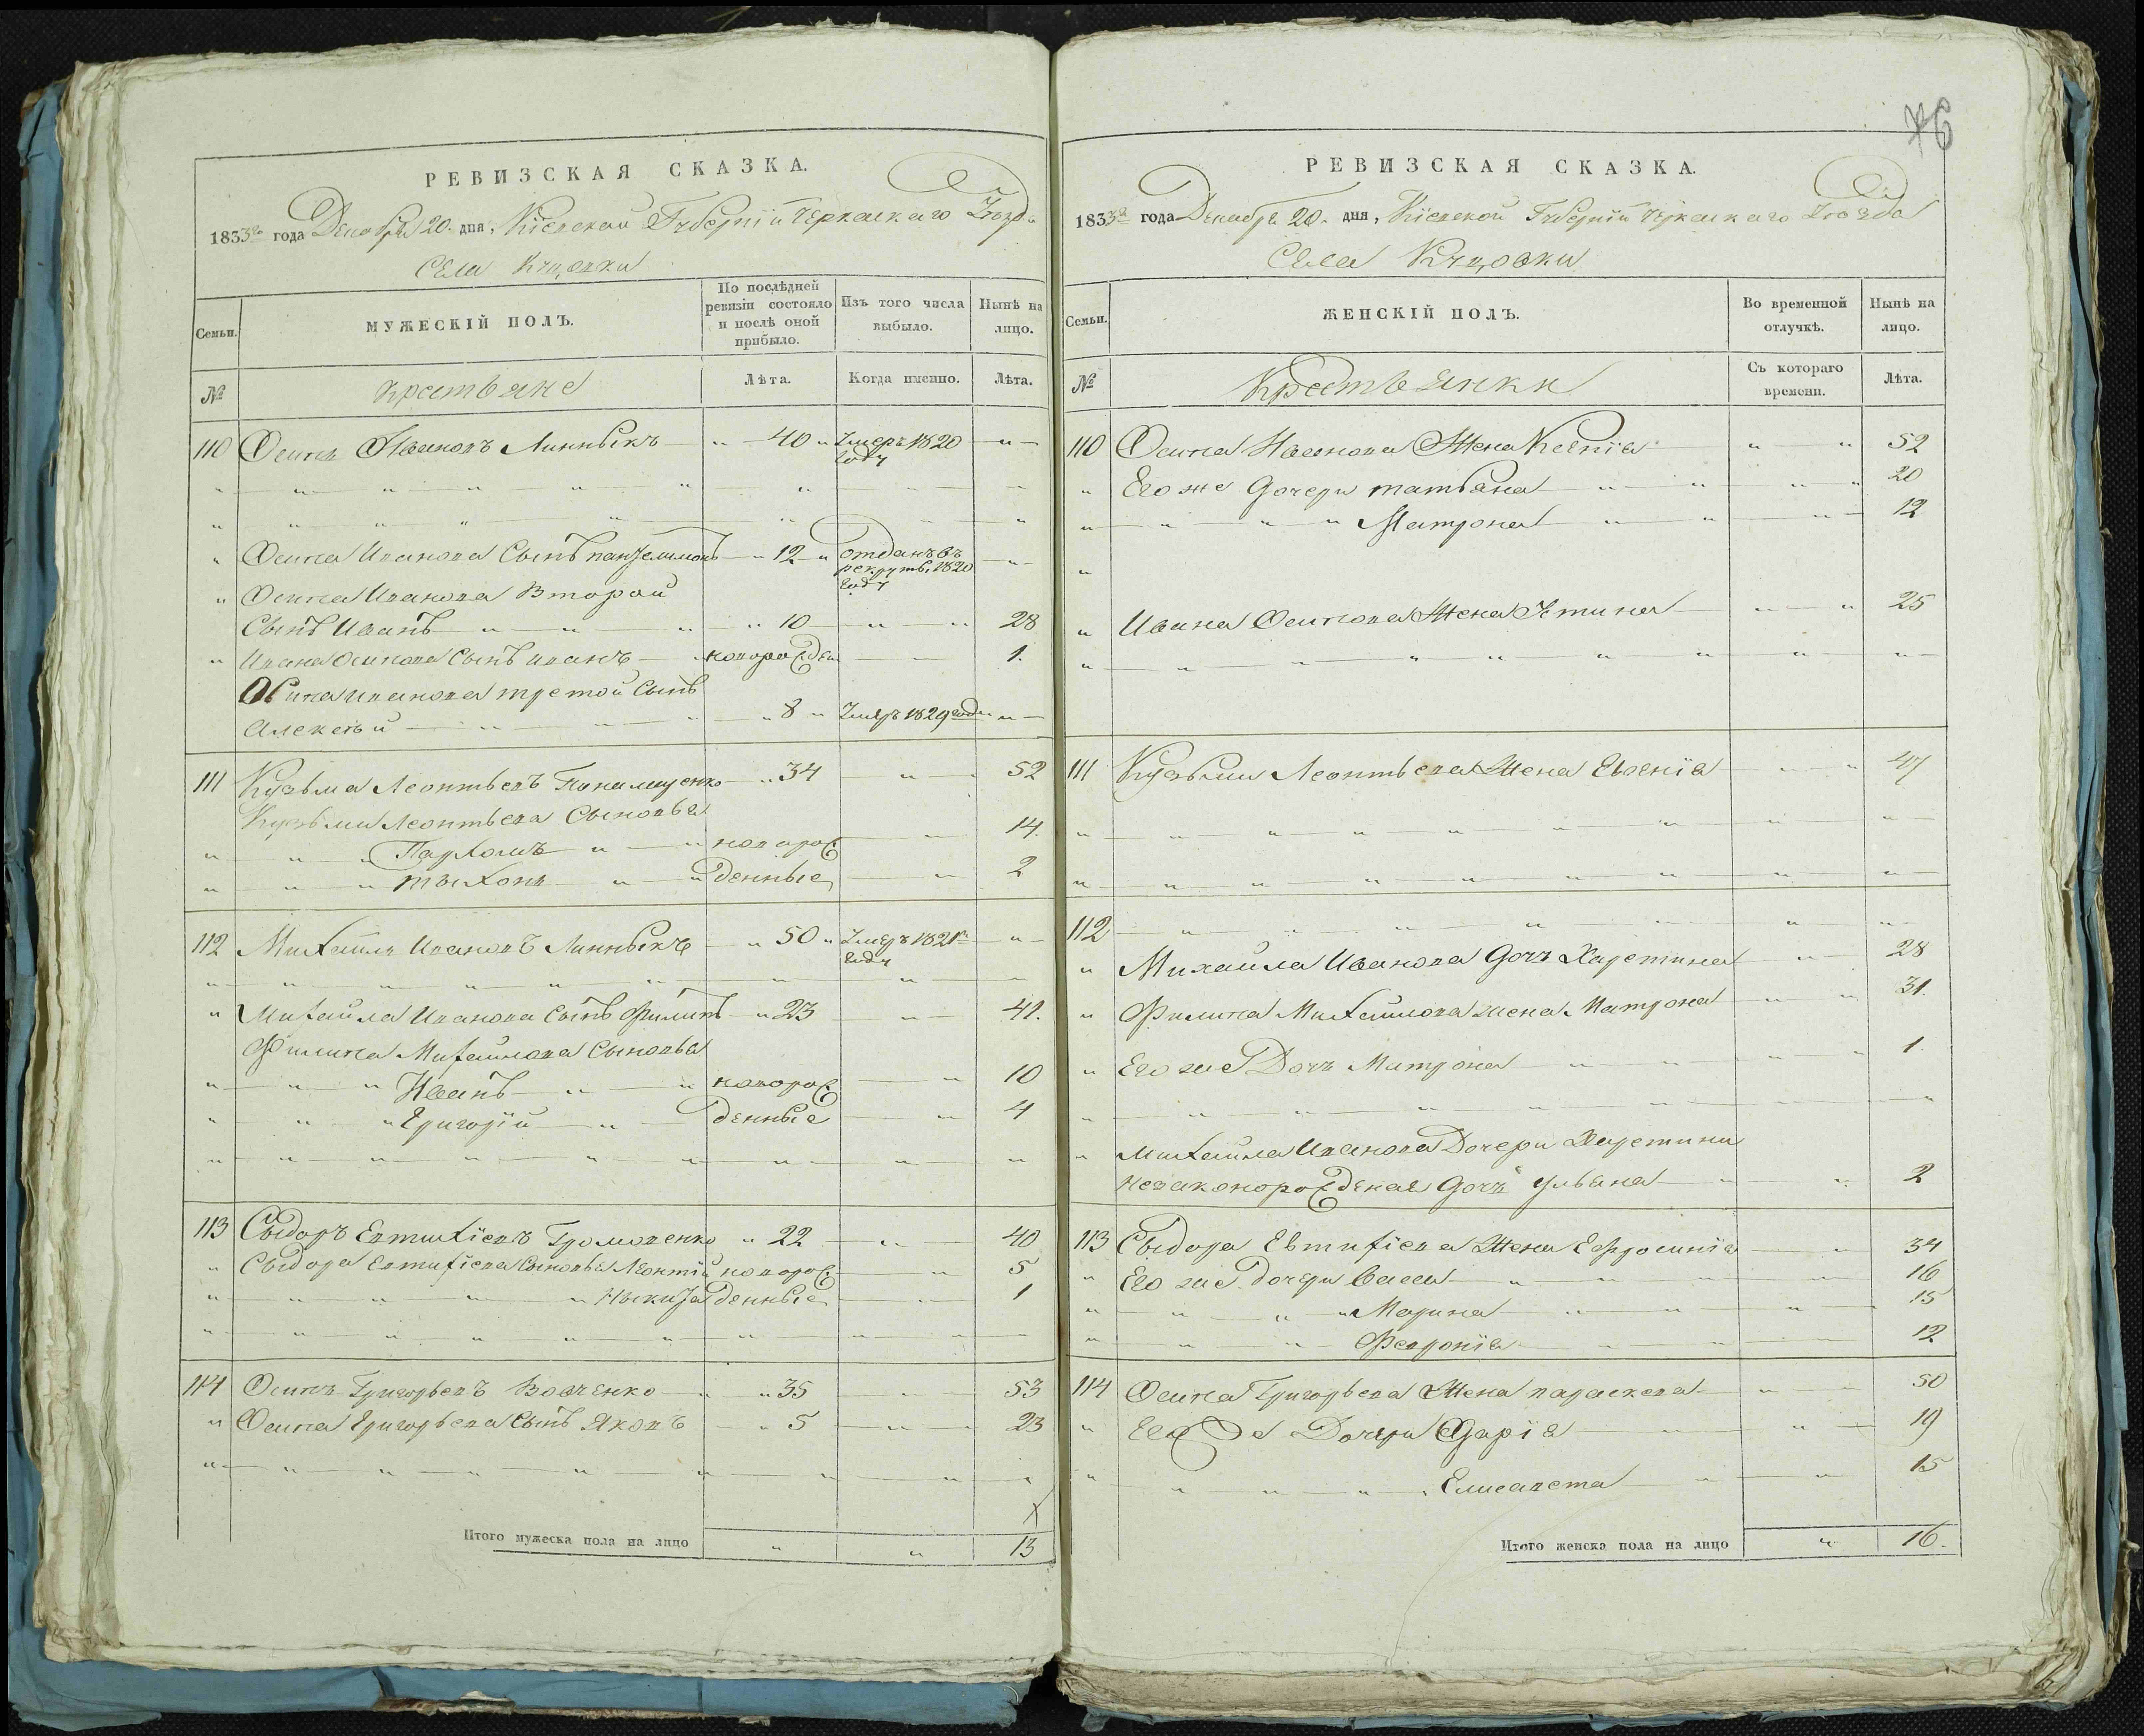 76
РЕВИЗСКАЯ СКАЗКА.
1833го года Декабря 20. дня, Кіевской Губерніи Черкаскаго Уезда
Села Куцовки
Семьи.
МУЖЕСКІЙ ПОЛЪ.
По послѣдней ревизіи состояло и послѣ оной прибыло.
Изъ того числа выбыло.
Нынѣ на лицо.
№
крестьяне
Лѣта.
Когда именно.
Лѣта.
110 Осипъ Ивановъ Линникъ 40 Умеръ 1820 году
Осипа Иванова Сынъ пантелимонъ 12 отданъ въ рекруты 1820 году
Осипа Иванова Второй
Сынъ Иванъ 10 28
Ивана Осипова Сынъ иванъ новорожден 1.
Осипа иванова третой Сынъ
Алексѣй 8 Умеръ 1829 году
111 Кузьма Леонтьевъ 34 52
Кузьми Леонтьева Сыновья
Пархомъ новорож 14.
тыхонъ денные 2
112 Михайла Ивановъ Линникъ 50 Умеръ 1821 году
Михайла Иванова Сынъ Филипъ 23 41.
Филипа Михайлова Сыновья
Иванъ новорож 10
Григорій денные 4
113 Сыдоръ Евтихіевъ Громовенко 22 40
Сыдора Евтихіева Сыновья Леонтій новорож 5
Ныкита денные 1
114 Осипъ Григорьевъ Вовченко 35 53
Осипа Григорьева Сынъ Яковъ 5 23
Итого мужеска пола на лицо 13
РЕВИЗСКАЯ СКАЗКА.
1833го года Декабря 20. дня, Кіевской Губерніи Черкаскаго Уезда
Села Куцовки
Семьи.
ЖЕНСКІЙ ПОЛЪ.
Во временной отлучкѣ.
Нынѣ на лицо.
№
Крестьянки
Съ котораго времени.
Лѣта.
110 Осипа Иванова Жена Ксенія 52
Его же дочери татьяна 20
Матрона 12
Ивана Осипова Жена Устина 25
111 Кузьми Леонтьева Жена Евгенія 47
112
Михаила Иванова дочь Харетина 28
Филипа Михайлова жена Матрона 31.
Его же Дочь Матрона 1.
Михайла Иванова Дочери Харетини
незаконорожденая дочь Ульяна 2
113 Сыдора Евтихіева Жена Ефросинія 34
Его же дочери Васса 16
Марина 15
Февронія 12
114 Осипа Григорьева Жена параскева 50
Его же Дочери Дарія 19
Елисавета 15
Итого женска пола на лицо 16.